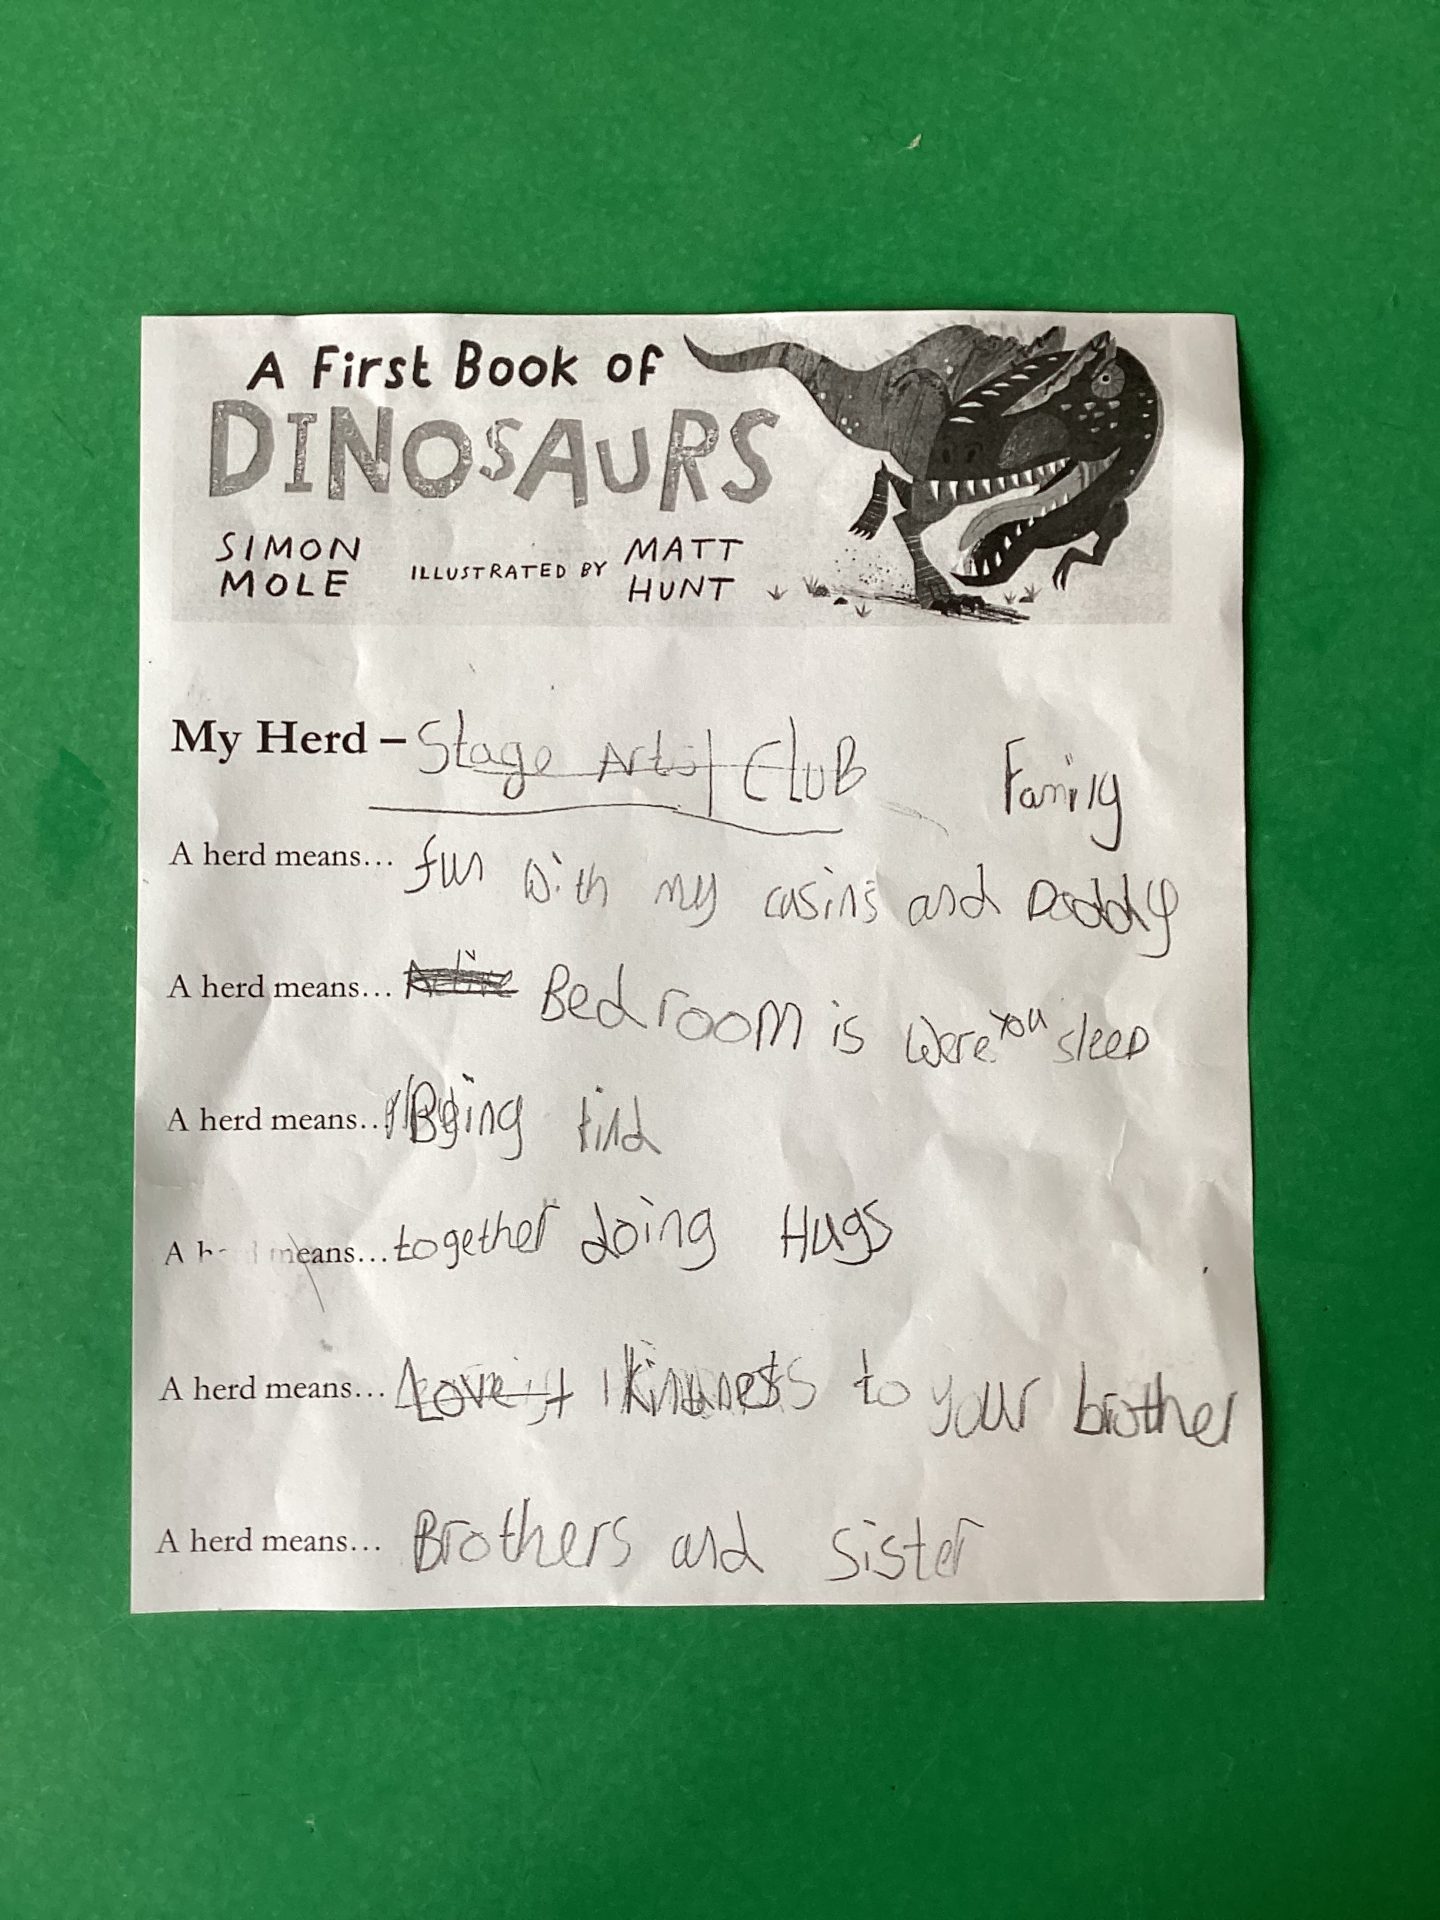 A First Book of
DINOSAURS
SIMON MOLE ILLUSTRATED BY MATT HUNT
My Herd – Stage Artist CLUB Family
A herd means... fun with my cusins and Daddy
A herd means... Active Bedroom is were you sleep
A herd means... Being kind
A herd means... together doing Hugs
A herd means... Love kindness to your brother
A herd means... Brothers and sister